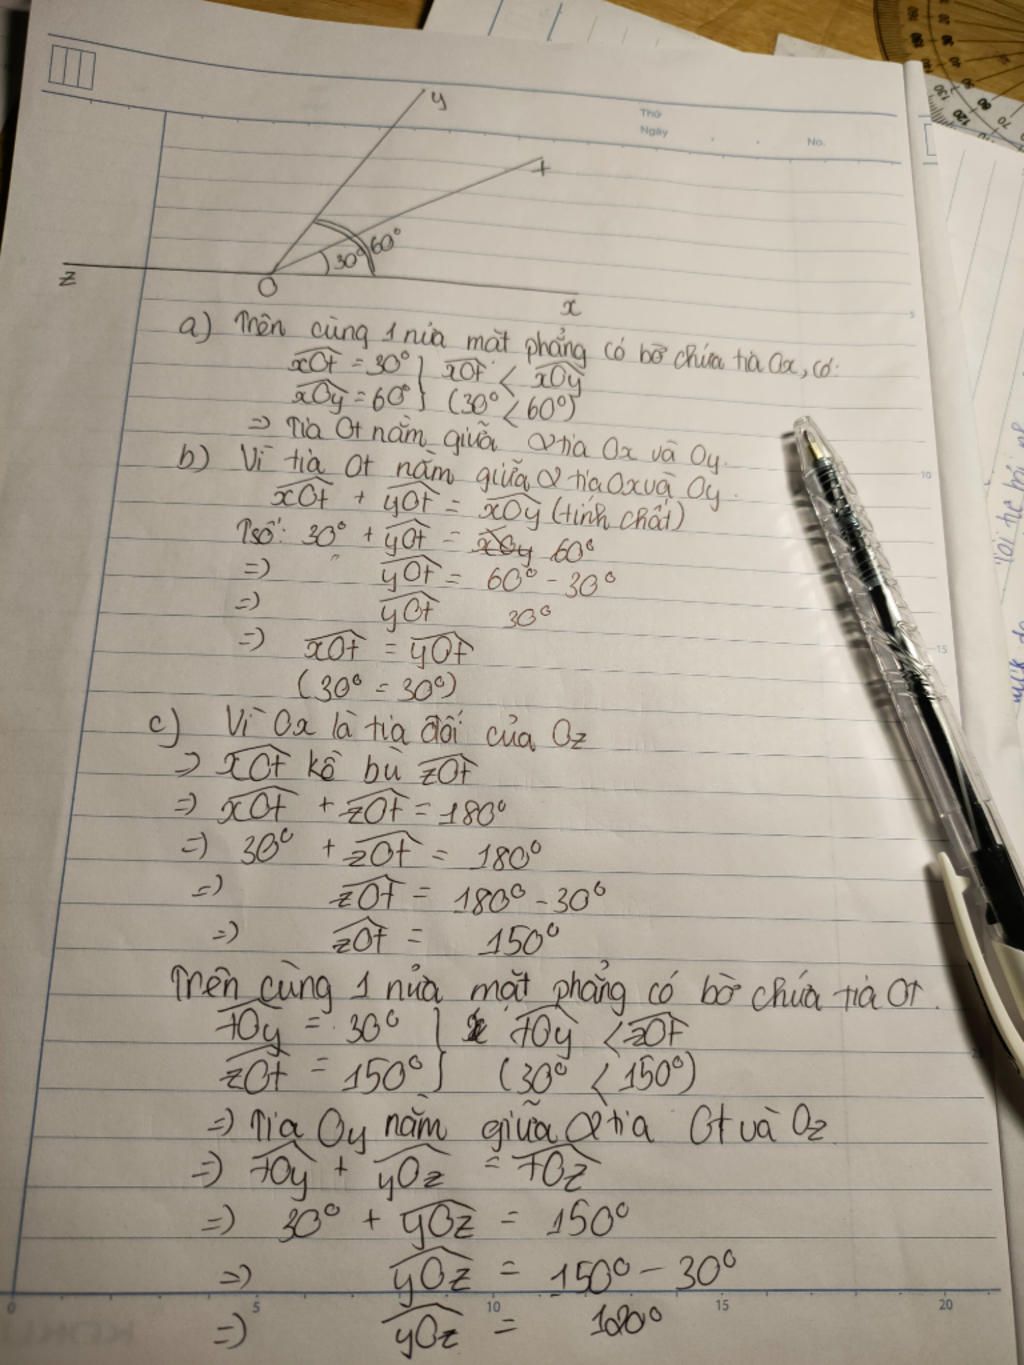 Thứ
Ngày . . No.
y
t
60°
30°
z
O
x
a) Trên cùng 1 nửa mặt phẳng có bờ chứa tia Ox, có:
xOt = 30° } xOt < xOy
xOy = 60° } (30° < 60°)
=> Tia Ot nằm giữa 2 tia Ox và Oy.
b) Vì tia Ot nằm giữa 2 tia Ox và Oy.
xOt + yOt = xOy (tính chất)
Tsố: 30° + yOt = xOy 60°
=> yOt = 60° - 30°
=> yOt 30°
=> xOt = yOt
(30° = 30°)
c) Vì Ox là tia đối của Oz
=> xOt kề bù zOt
=> xOt + zOt = 180°
=> 30° + zOt = 180°
=> zOt = 180° - 30°
=> zOt = 150°
Trên cùng 1 nửa mặt phẳng có bờ chứa tia Ot.
tOy = 30° } tOy < zOt
zOt = 150° } (30° < 150°)
=> Tia Oy nằm giữa 2 tia Ot và Oz
=> tOy + yOz = tOz
=> 30° + yOz = 150°
=> yOz = 150° - 30°
=> yOz = 120°
0 5 10 15 20
5
10
15